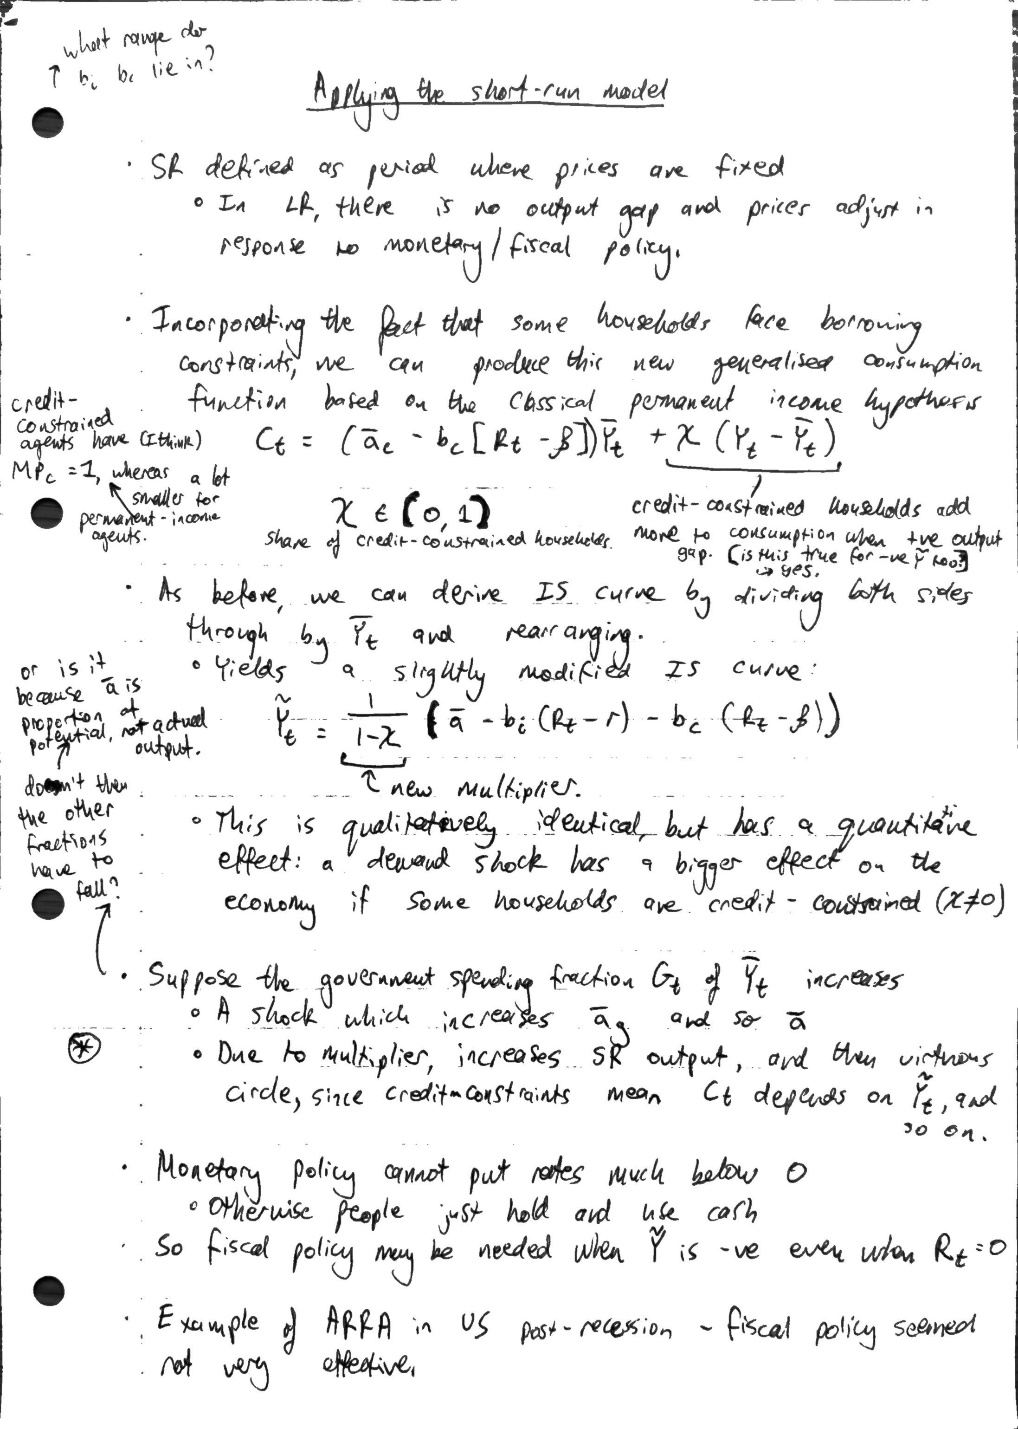 what range do
↑ b_i b_c lie in?
Applying the short-run model
· SR defined as period where prices are fixed
∘ In LR, there is no output gap and prices adjust in
response to monetary/fiscal policy.
· Incorporating the fact that some households face borrowing
constraints, we can produce this new generalised consumption
function based on the classical permanent income hypothesis
credit-
constrained
agents have (I think)
MPc = 1, whereas a lot
smaller for
permanent-income
agents.
C_t = (ā_c - b_c [R_t - β])Ȳ_t + χ (Y_t - Ȳ_t)
χ ∈ [0,1)
share of credit-constrained households.
credit-constrained households add
more to consumption when +ve output
gap. [is this true for -ve Ỹ too?]
→ yes.
· As before, we can derive IS curve by dividing both sides
through by Ȳ_t and rearranging.
∘ Yields a slightly modified IS curve:
or is it
because ā is
proportion of
potential, not actual
output.
Ỹ_t = 1/(1-χ) (ā - b_i (R_t - r) - b_c (R_t - β))
↑ new multiplier.
doesn't then
the other
fractions
have to
fall?
∘ This is qualitatively identical, but has a quantitative
effect: a demand shock has a bigger effect on the
economy if some households are credit-constrained (χ≠0)
· Suppose the government spending fraction G_t of Ȳ_t increases
∘ A shock which increases ā_g and so ā
∘ Due to multiplier, increases SR output, and then virtuous
circle, since credit-constraints mean C_t depends on Ỹ_t, and
so on.
· Monetary policy cannot put rates much below 0
∘ Otherwise people just hold and use cash
· So fiscal policy may be needed when Ỹ is -ve even when R_t = 0
· Example of ARRA in US post-recession - fiscal policy seemed
not very effective.